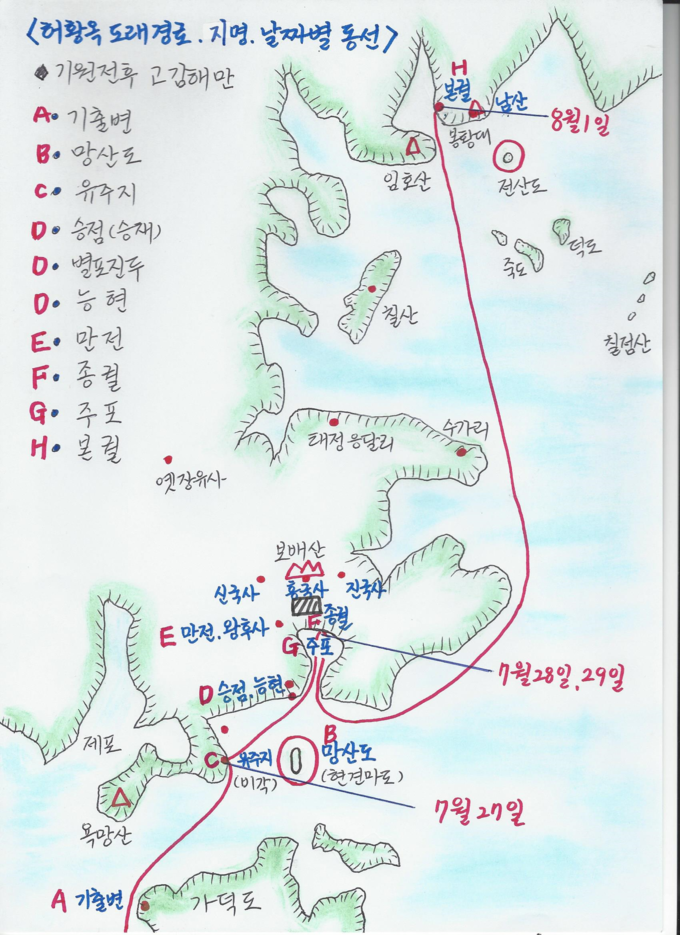 <허황옥 도래경로. 지명. 날짜별 동선>
◆ 기원전후 고김해만
A• 기출변
B• 망산도
C• 유주지
D• 승점(승재)
D• 별포진두
D• 능현
E• 만전
F• 종궐
G• 주포
H• 본궐
H
본궐
남산
8월1일
봉황대
임호산
전산도
죽도
덕도
칠산
칠점산
태정응달리
수가리
옛장유사
보배산
신국사
흥국사
진국사
F 종궐
E 만전.왕후사
G 주포
7월28일, 29일
D 승점,능현
B
제포
C 유주지
(비각)
망산도
(현견마도)
7월27일
욕망산
A 기출변
가덕도